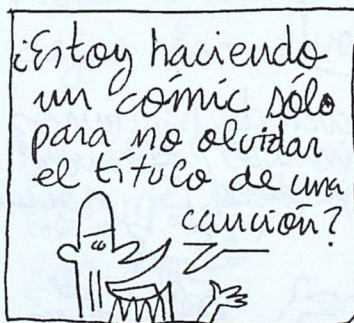 ¿Estoy haciendo
un cómic sólo
para no olvidar
el título de una
canción?